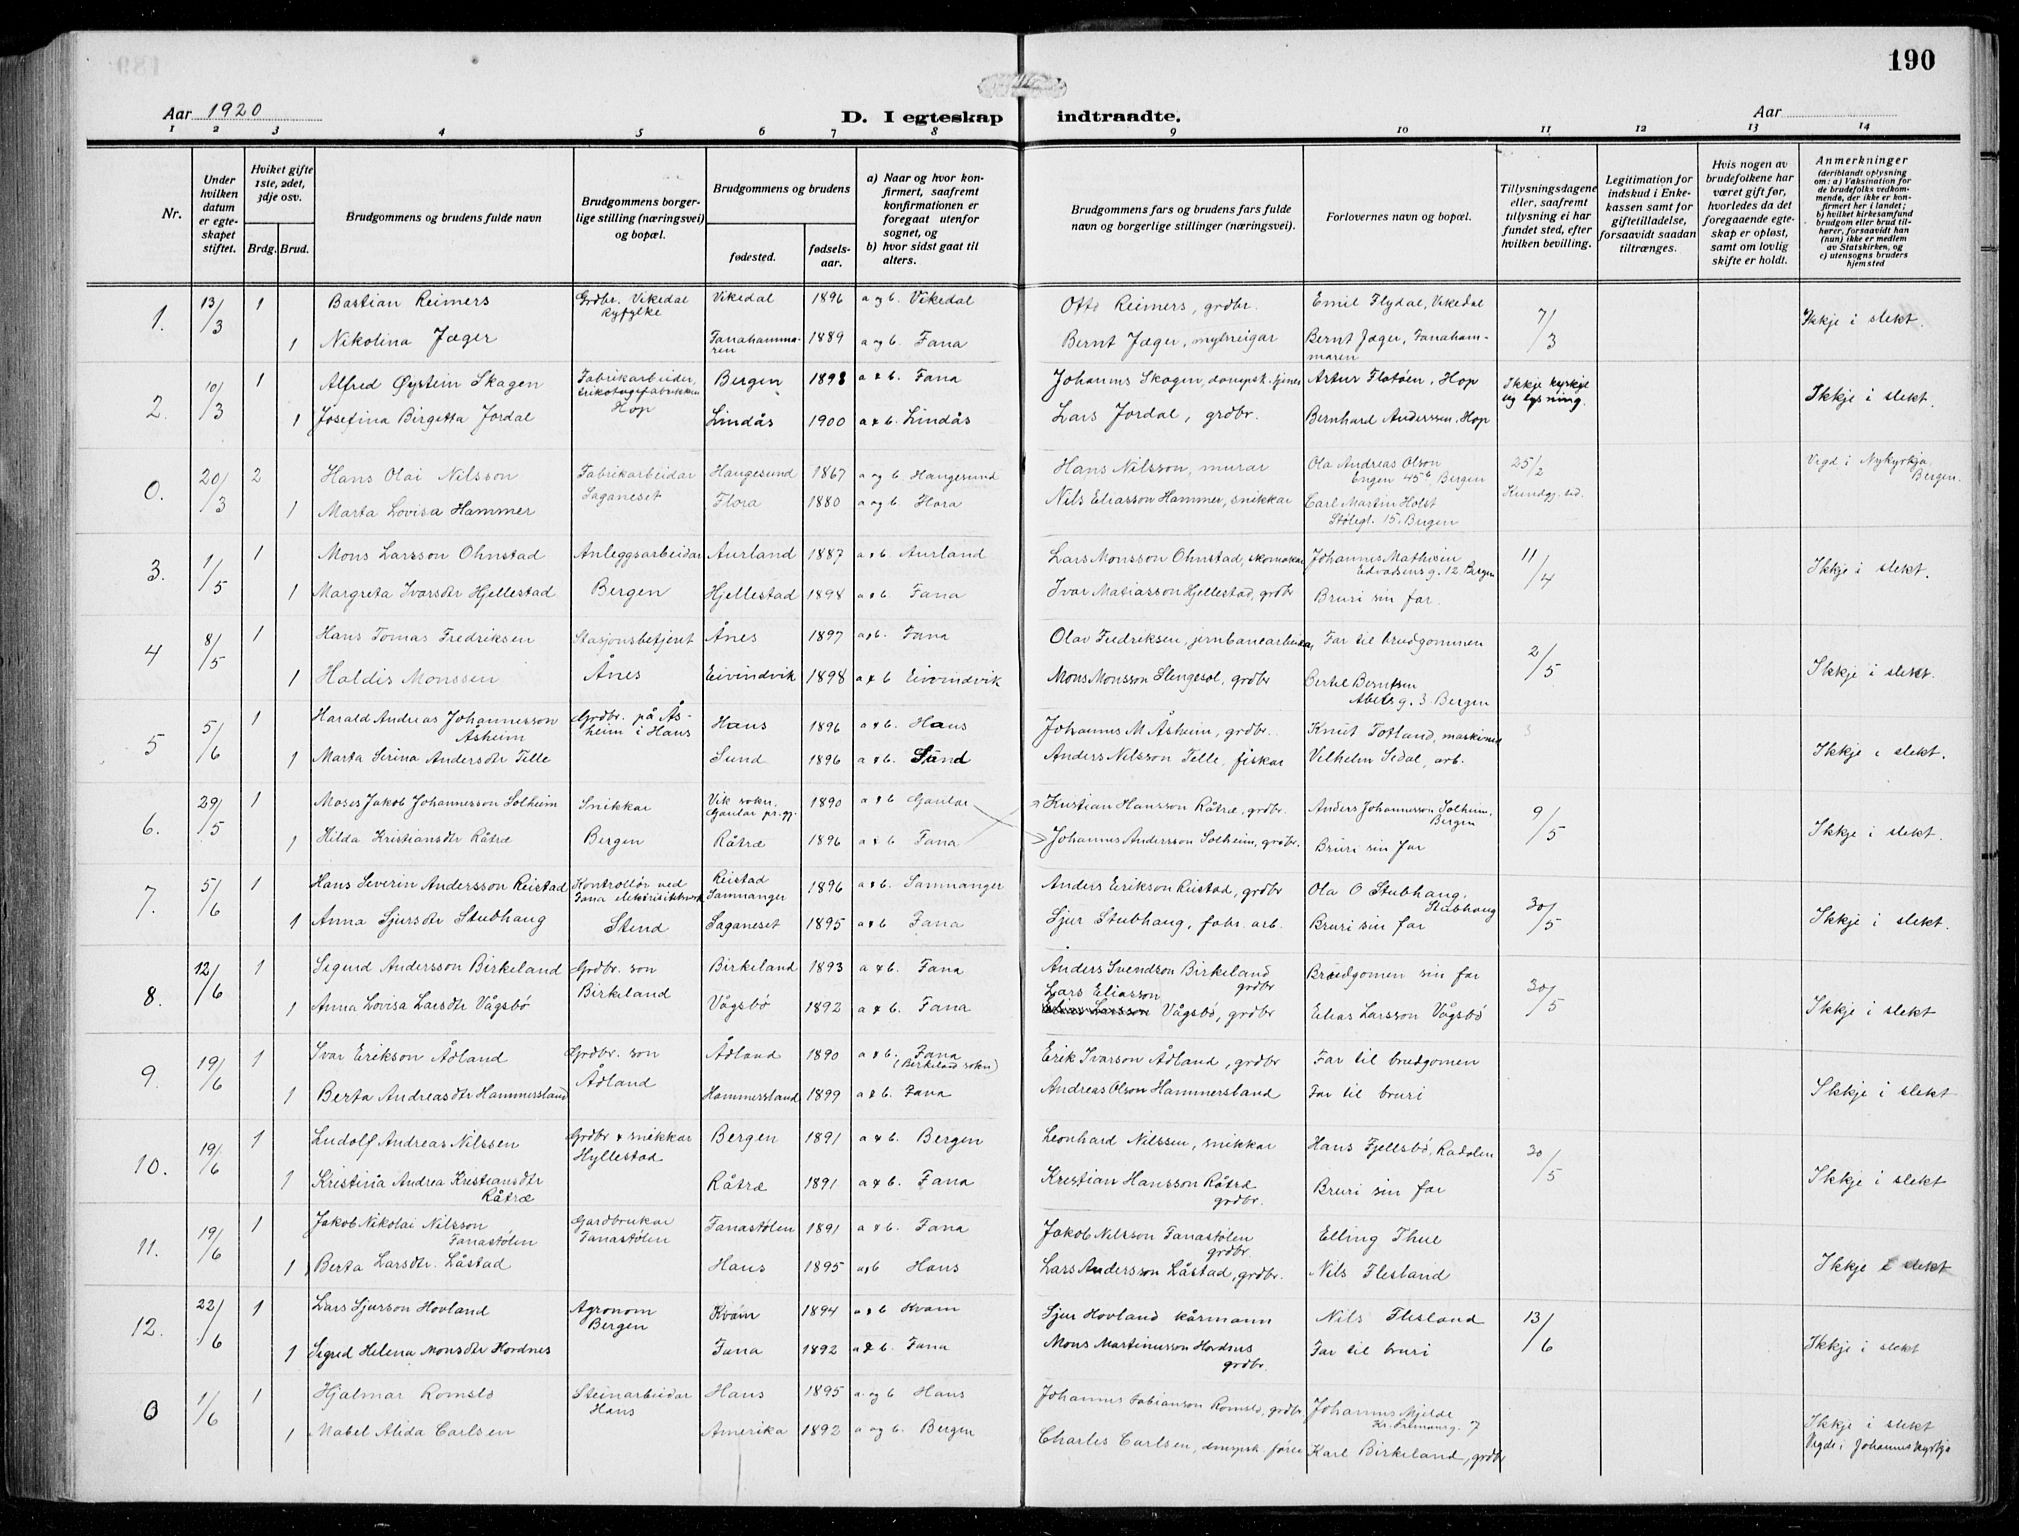 190
Aar 1920
D. I egteskap indtraadte.
Aar
1 2 3 4 5 6 7 8 9 10 11 12 13 14
Nr.
Under hvilken datum er egteskapet stiftet.
Hviket gifte 1ste, 2det, 3dje osv.
Brdg. Brud.
Brudgommens og brudens fulde navn
Brudgommens borgerlige stilling (næringsvei) og bopæl.
Brudgommens og brudens
fødested.
fødselsaar.
a) Naar og hvor konfirmert, saafremt konfirmationen er foregaat utenfor sognet, og
b) hvor sidst gaat til alters.
Brudgommens fars og brudens fars fulde navn og borgerlige stillinger (næringsvei).
Forlovernes navn og bopæl.
Tillysningsdagene eller, saafremt tillysning ei har fundet sted, efter hvilken bevilling.
Legitimation for indskud i Enkekassen samt for giftetilladelse, forsaavidt saadan tiltrænges.
Hvis nogen av brudefolkene har været gift før, hvorledes da det foregaaende egteskap er opløst, samt om lovlig skifte er holdt.
Anmerkninger
(deriblandt oplysning om: a) Vaksination for de brudefolks vedkommende, der ikke er konfirmert her i landet; b) hvilket kirkesamfund brudgom eller brud tilhører, forsaavidt han (hun) ikke er medlem av Statskirken, og c) utensogns bruders hjemsted
1. 13/3 1 Bastian Reimers Grdbr. Vikedal Ryfylke Vikedal 1896 a og b. Vikedal Otto Reimers, grdbr. Emil Flydal, Vikedal 7/3 Ikkje i slekt.
1 Nikolina Jæger Fanahammaren 1889 a og b. Fana Bernt Jæger, mylneigar Bernt Jæger, Fanahammaren
2. 10/3 1 Alfred Øystein Skagen Fabrikarbeider, trikotagefabrikken Hop Bergen 1898 a & b. Fana Johannes Skagen, dampsk. tjener Artur Flatøen, Hop Ikkje kyrkjeleg lysning. Ikkje i slekt.
1 Josefina Birgitta Jordal Lindås 1900 a & b. Lindås Lars Jordal, grdbr. Bernhard Anderssen, Hop
0. 20/3 2 Hans Olai Nilsson Fabrikarbeidar Saganeset Haugesund 1867 a og b Haugesund Hans Nilsson, murar Ola Andreas Olson Engen 45b Bergen 25/2 Vigd i Nykyrkja, Bergen.
1 Marta Lovisa Hammer Flora 1880 a og b. Flora Nils Eliasson Hammer, snikkar Carl Martin Holst Stølegt. 15. Bergen
3. 1/5 1 Mons Larsson Ohnstad Anleggsarbeidar Bergen Aurland 1887 a & b Aurland Lars Monsson Ohnstad, skomakar Johannes Mathisen Edvardsensg. 12 Bergen 11/4 Ikkje i slekt.
1 Margreta Ivarsdtr Hjellestad Hjellestad 1898 a & b. Fana Ivar Matiasson Hjellestad, grdbr Bruri sin far.
4 8/5 1 Hans Tomas Fredriksen Stasjonsbetjent Ånes Ånes 1897 a & b. Fana Olav Fredriksen, jernbanearbeidar Far til brudgommen 2/5 Ikkje i slekt.
1 Haldis Monssen Eivindvik 1898 a & b Eivindvik Mons Monsson Slengesol, grdbr Bertel Berntsen Abelsg. 3 Bergen
5 5/6 1 Harald Andreas Johannesson Åsheim Grdbr. på Åsheim i Haus Haus 1896 a & b. Haus Johannes M. Åsheim, grdbr. Knut Totland, maskinist Ikkje i slekt.
1 Marta Serina Andersdtr Telle Sund 1896 a & b. Sund Anders Nilsson Telle, fiskar Vilhelm Sedal, arb.
6. 29/5 1 Moses Jakob Johannesson Solheim Snikkar Bergen Vik sokn. Gaular pr.gj. 1890 a & b Gaular Kristian Hansson Råtræ, grdbr. Anders Johannesson Solheim, Bergen 9/5 Ikkje i slekt.
1 Hilda Kristiansdtr Råtræ Råtræ 1896 a & b Fana Johannes Andersson Solheim, grdbr. Bruri sin far
7. 5/6 1 Hans Severin Andersson Reistad Kontrollør ved Fana elektrisitetsverk Stend Reistad Samnanger 1896 a & b. Samnanger Anders Erikson Reistad, grdbr Ola O Stubhaug, Stubhaug 30/5 Ikkje i slekt.
1 Anna Sjursdtr Stubhaug Saganeset 1895 a & b Fana Sjur Stubhaug, fabr. arb. Bruri sin far
8. 12/6 1 Sigurd Andersson Birkeland Grdbr. son Birkeland Birkeland 1893 a & b. Fana Anders Svendson Birkeland grdbr Brudgomen sin far 30/5 Ikkje i slekt
1 Anna Lovisa Larsdtr Vågsbø Vågsbø 1892 a & b. Fana Lars Eliasson Vågsbø, grdbr Elias Larsson Vågsbø
9. 19/6 1 Ivar Erikson Ådland Grdbr. son Ådland Ådland 1890 a & b. Fana (Birkeland sokn) Erik Ivarson Ådland, grdbr Far til brudgomen Ikkje i slekt
1 Berta Andreasdtr Hammersland Hammersland 1899 a & b. Fana Andreas Olson Hammersland Far til bruri
10. 19/6 1 Ludolf Andreas Nilssen Grdbr & snikkar Hyllestad Bergen 1891 a & b. Bergen Leonhard Nilssen, snikkar Hans Fjellsbø, Radøien 30/5 Ikkje i slekt
1 Kristina Andrea Kristiansdtr Råtræ Råtræ 1891 a & b. Fana Kristian Hansson Råtræ grdbr. Bruri sin far
11. 19/6 1 Jakob Nikolai Nilsson Fanastølen Gardbrukar Fanastølen Fanastølen 1891 a & b. Fana Jakob Nilsson Fanastølen grdbr Elling Thue Ikkje i slekt
1 Berta Larsdtr. Låstad Haus 1895 a & b Haus Lars Andersson Låstad, grdbr. Nils Flesland
12. 22/6 1 Lars Sjurson Hovland Agronom Bergen Kvam 1894 a & b Kvam Sjur Hovland kårmann Nils Flesland 13/6 Ikkje i slekt
1 Sigrid Helena Monsdtr Hordnes Fana 1892 a & b. Fana Mons Martinusson Hordnes grdbr. Far til bruri
0 1/6 1 Hjalmar Romslo Steinarbeidar Haus Haus 1895 a og b Haus Johannes Fabianson Romslo, grdbr. Johannes Mjelde 7
1 Mabel Alida Carlsen Amerika 1892 a og b. Bergen Charles Carlsen, dampsk. fører Karl Birkeland, grdbr Ikkje i slekt Vigde i Johanneskyrkja